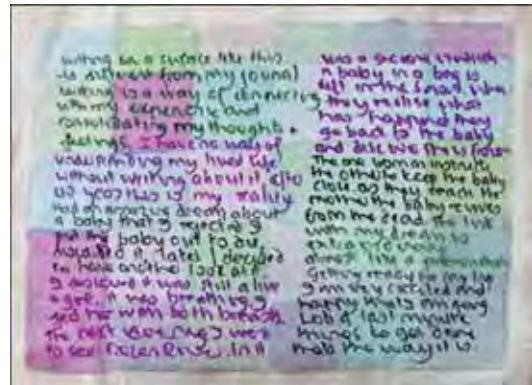 writing on a surface like this
is different from my journal
writing is a way of connecting
with my experience and
consolidating my thoughts +
feelings. I have no way of
understanding my lived life
without writing about it. after
years this is my reality
Had an amazing dream about
a baby that I rejected I
put the baby out to die
later I decided
to have another look at it
I discovered it was still alive
a girl. it was breathing I
fed her with both breasts
the next evening I went
to see In it
was a second
a baby in a bag is
left in the snow when
they realise what
has happened they
go back to the baby
and discover she is frozen
The one woman instructs
the other to keep the baby
close. as they reach the
mother the baby revives
from the dead. the link
with my dream is
extraordinary
almost like a premonition
Getting ready for my trip
I am very excited and
happy
Lots of last minute
things to get done
thats the way it is.